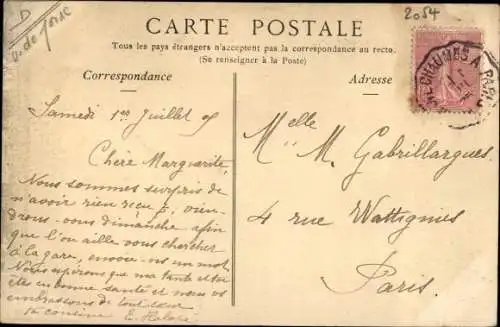 D
v. de josc
2054
CARTE POSTALE
Tous les pays étrangers n'acceptent pas la correspondance au recto.
(Se renseigner à la Poste)
Correspondance
Adresse
CHAUMES A PARI
Samedi 1er Juillet 05
Chère Marguerite,
Nous sommes surpris de
n'avoir rien reçu, vien-
drons-vous dimanche afin
que l'on aille vous chercher
à la gare, envoie-us un mot
Nous espérons que ma tante et toi
êtes en bonne santé et nous vs
embrassons de tout cœur
ta cousine E.
Melle M. Gabrillargues
4 rue Wattignies
Paris.